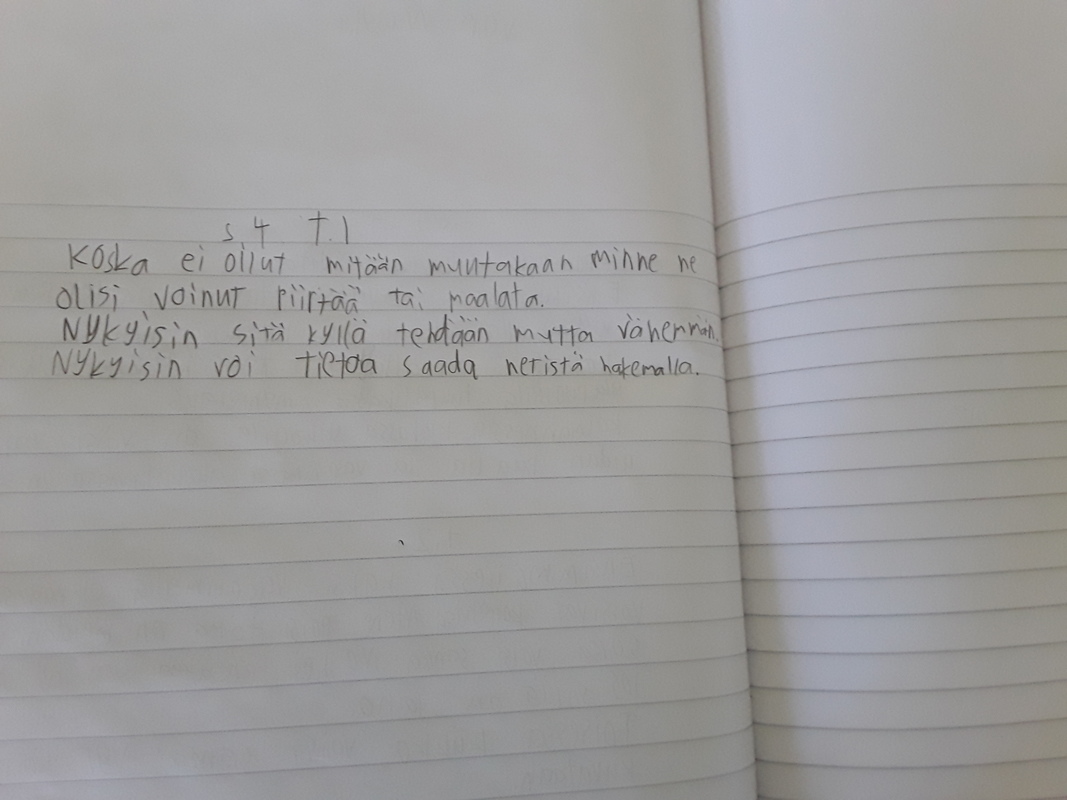 s 4 t.1
Koska ei ollut mitään muutakaan minne ne
olisi voinut piirtää tai maalata.
Nykyisin sitä kyllä tehdään mutta vähemmän.
Nykyisin voi tietoa saada netistä hakemalla.